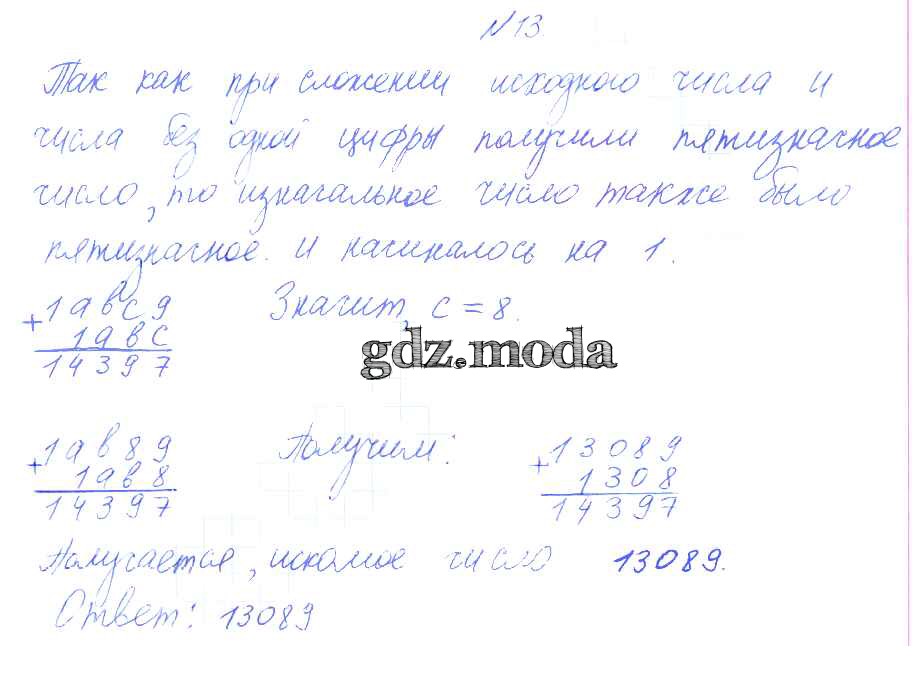 №13.
Так как при сложении исходного числа и
числа без одной цифры получили пятизначное
число, то изначальное число также было
пятизначное. и начиналось на 1.
+1авс9 Значит, с = 8.
1авс
14397
gdz.moda
+1ав89 Получим: +13089
1ав8 1308
14397 14397
Получается, искомое число 13089.
Ответ: 13089